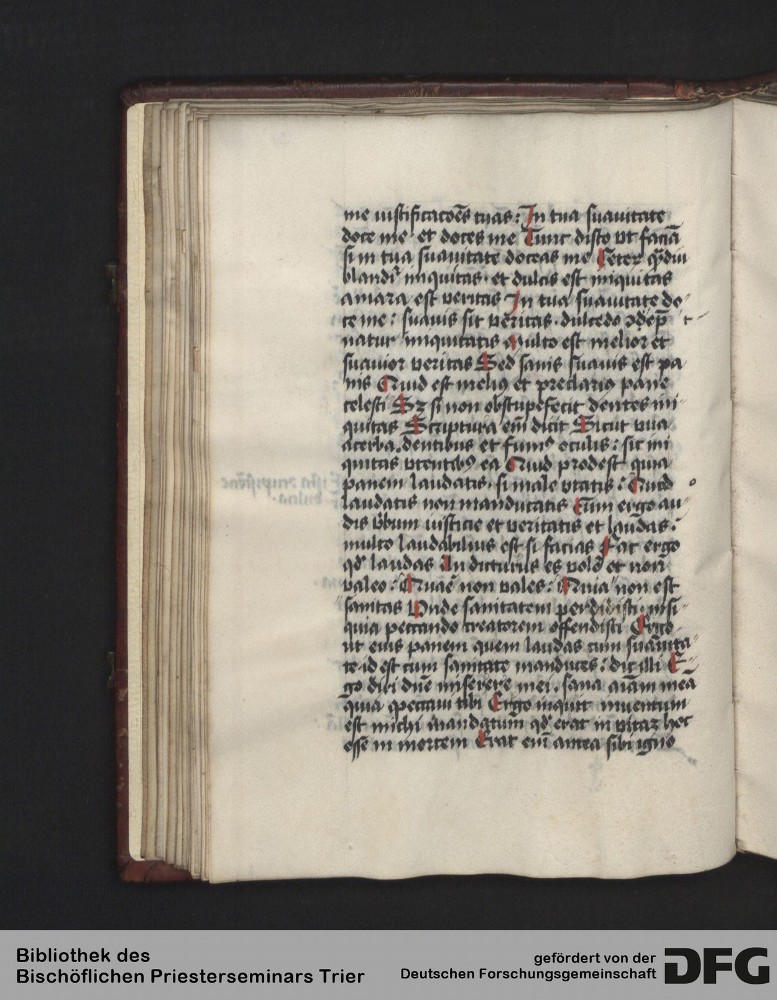 me iustificacoēs tuas : In tua suauitate
doce me · et doces me Tunc disco vt faciā
si in tua suauitate doceas me Ceter qͣdiu
blandiͬ iniquitas · et dulcis est iniquitas
amara est veritas In tua suauitate do-
ce me : suauis sit vēritas · dulcedo ꝯdēp
natur iniquitatis Multo est melior et
suauior veritas Sed sanis suauis est pa
nis Quid est meliꝰ et preclariꝰ pane
celesti Sꝫ si non obstupefecit dentes ini
quitas Scriptura eīm dicit Sicut vua
acerba · dentibus et fumꝰ oculis : sic ini
quitas vtentibꝰ ea Quid prodest quia
panem laudatis · si male vtatis : Quid
laudatis non manducatis Cum ergo au
dis v̄bum iusticie et veritatis et laudas :
multo laudabilius est si facias Fac ergo
qd̛ laudas An dicturus es volo et non
valeo : Quare non vales : Quia non est
sanitas Vnde sanitatem perdidisti · nisi
quia peccando creatorem offendisti Ergo
ut eius panem quem laudas cum suauita
te · id est cum sanitate manduces : dic illi E-
go dixi dn̄e miserere mei · sana aīam mea
quia peccaui tibi Ergo inquit inuentum
est michi mandatum qd̛ erat in vitaꝫ hoc
esse in mortem Erat eīm antea sibi igno
Bibliothek des
Bischöflichen Priesterseminars Trier
gefördert von der
Deutschen Forschungsgemeinschaft
DFG